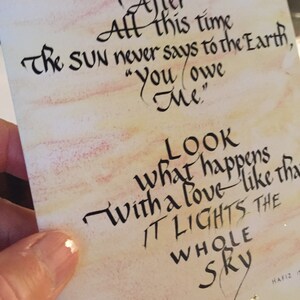 After
All this time
The SUN never says to the Earth,
"You owe
Me."
LOOK
What happens
With a love like that
IT LIGHTS THE
WHOLE
Sky
HAFIZ